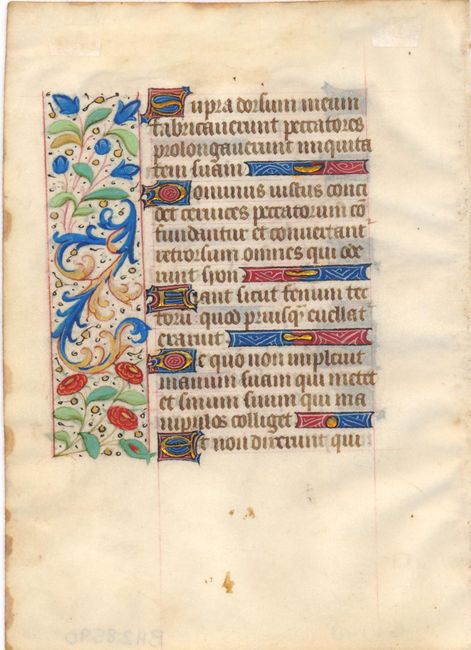 Supra dorsum meum
fabricauerunt peccatores
prolongauerunt iniquita
tem suam
Dominus iustus conci
det ceruices peccatorum cō
fundantur et conuertant
retrorsum omnes qui ode
runt syon
Fiant sicut fenum tec
torū quod priusq̄ euellat
exaruit
De quo non impleuit
manum suam qui metit
et sinum suum qui ma
nipulos colliget
Et non dixerunt qui